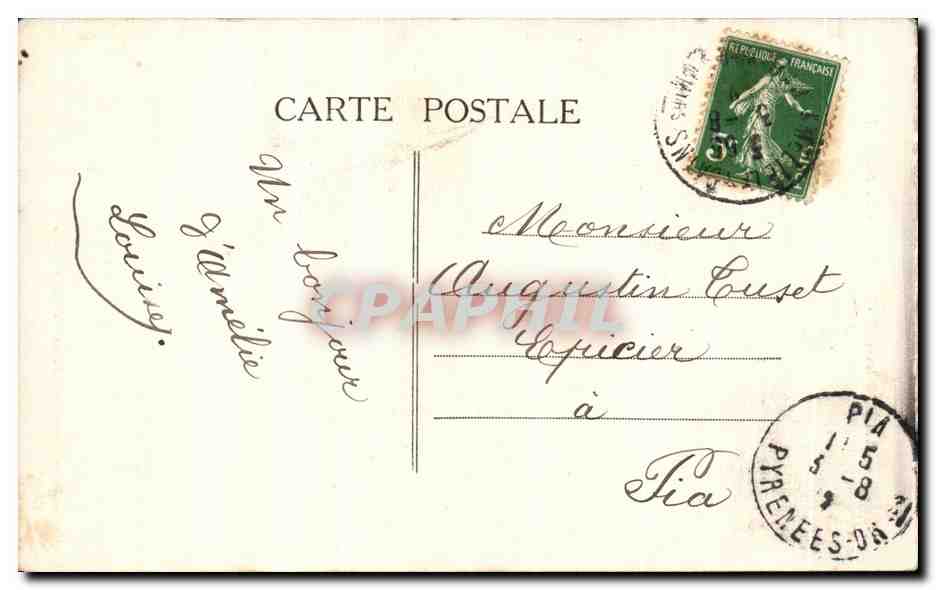 CARTE POSTALE
Un bonjour
d'Amélie
Louise.
Monsieur
Augustin Tuset
Epicier
à
Pia
REPUBLIQUE FRANÇAISE
5c
PIA
5
-8
PYRENEES-OR
CPAPHIL